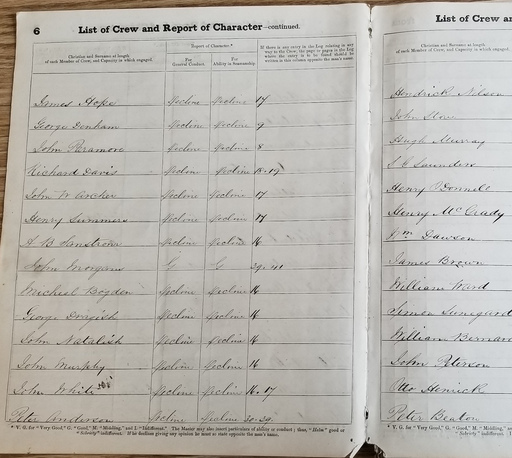 6 List of Crew and Report of Character—continued.
Christian and Surname at length
of each Member of Crew, and Capacity in which engaged.
Report of Character.*
For
General Conduct.
For
Ability in Seamanship.
If there is any entry in the Log relating in any
way to the Crew, the page or pages in the Log
where the entry is to be found should be
written in this column opposite the man's name.
James Hope Decline Decline 17
George Denham Decline Decline 9
John Paramore Decline Decline 8
Richard Davis Decline Decline 18-19
John W Archer Decline Decline 17
Henry Summers Decline Decline 17
A B Decline Decline 16
John G G 39-41
Micheal Bogden Decline Decline 16
George Decline Decline 16
John Natalish Decline Decline 16
John Murphy Decline Decline 16
John White Decline Decline 16-17
Peter Anderson Decline Decline
* V. G. for "Very Good," G. "Good," M. "Middling," and I. "Indifferent." The Master may also insert particulars of ability or conduct; thus, "Helm" good or
"Sobriety" indifferent. If he declines giving any opinion he must so state opposite the man's name.
List of Crew a
Christian and Surname at length
of each Member of Crew, and Capacity in which engaged.
Hendrick Nilson
John Stove
Hugh Murray
Saunders
Henry O'Donnell
Henry McGrady
Wm Dawson
James Brown
William Ward
William Bernar
John Peterson
Otto Henrick
Peter Beaton
* V. G. for "Very Good," G. "Good," M. "Middling,"
"Sobriety" indifferent. If he